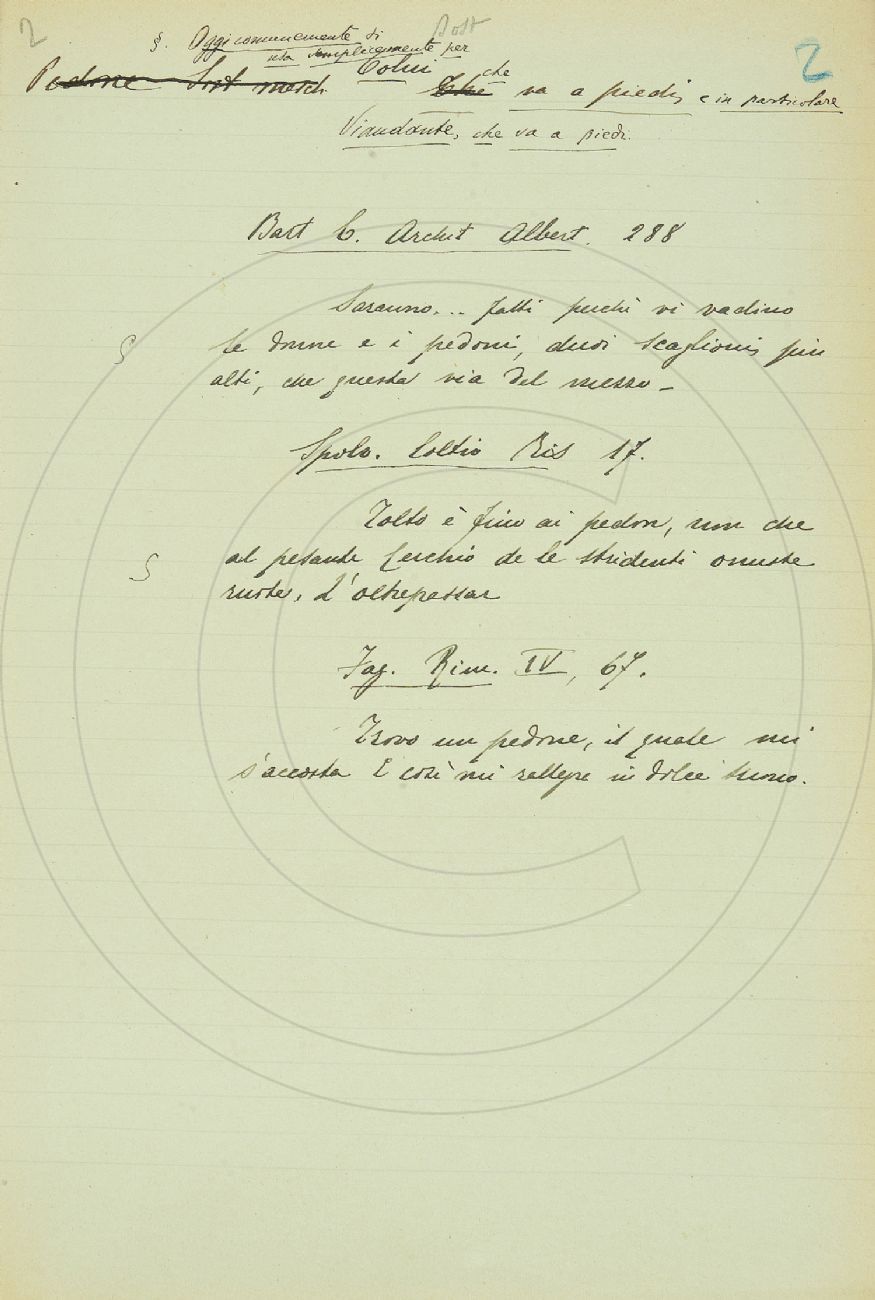 2 Sost 2
§. Oggi comunemente si
usa semplicemente per
Pedone Sost masch. Colui Che che va a piedi, e in particolare
Viandante, che va a piedi.
Bart C. Archit Albert. 288
Saranno... fatti perchè vi vadino
le donne e i pedoni, duoi scaglioni più
alti, che questa via del mezzo -
Spolv. Coltiv Ris 17.
Tolto è fino ai pedon, non che
al pesante Cerchio de le stridenti onuste
ruote, L'oltrepassar
Fag. Rim. IV, 67.
Trovo un pedone, il quale mi
s'accosta E così mi
in dolce suono.